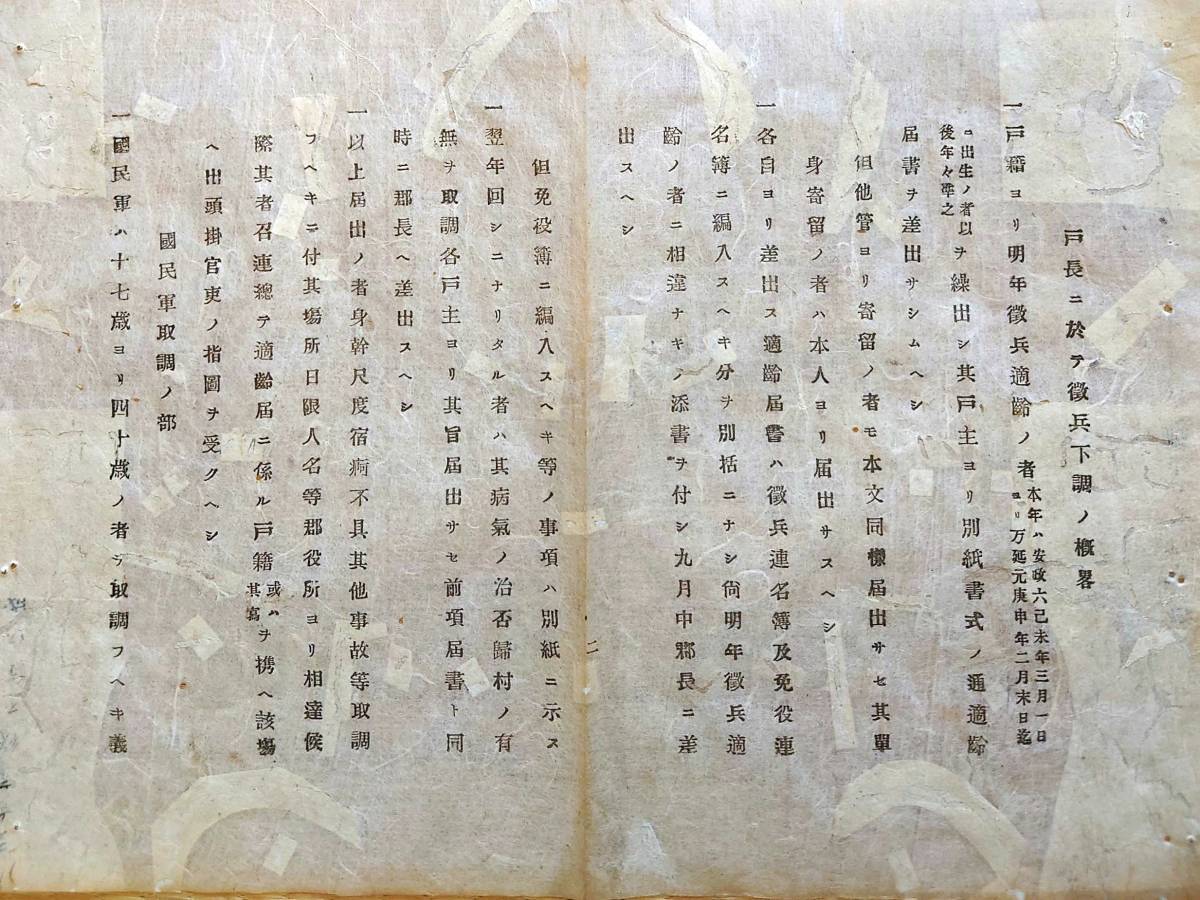 戸長ニ於テ徴兵下調ノ概畧
一戸籍ヨリ明年徴兵適齡ノ者本年ハ安政六己未年三月一日ヨリ万延元庚申年二月末日迄
ニ出生ノ者以後年々準之ヲ繰出シ其戸主ヨリ別紙書式ノ通適齡
屆書ヲ差出サシムヘシ
但他管ヨリ寄留ノ者モ本文同樣屆出サセ其單
身寄留ノ者ハ本人ヨリ届出サスヘシ
一各自ヨリ差出ス適齡屆書ハ徴兵連名簿及免役連
名簿ニ編入スヘキ分ヲ別括ニナシ尙明年徴兵適
齡ノ者ニ相違ナキノ添書ヲ付シ九月中郡長ニ差
出スヘシ
二
但免役簿ニ編入スヘキ等ノ事項ハ別紙ニ示ス
一翌年回シニナリタル者ハ其病氣ノ治否歸村ノ有
無ヲ取調各戸主ヨリ其旨屆出サセ前項屆書ト同
時ニ郡長ヘ差出スヘシ
一以上屆出ノ者身幹尺度宿痾不具其他事故等取調
フヘキニ付其塲所日限人名等郡役所ヨリ相達候
際其者召連總テ適齡屆ニ係ル戸籍或ハ其寫ヲ携ヘ該塲
ヘ出頭掛官吏ノ指圖ヲ受クヘシ
國民軍取調ノ部
一國民軍ハ十七歳ヨリ四十歳ノ者ヲ取調フヘキ義